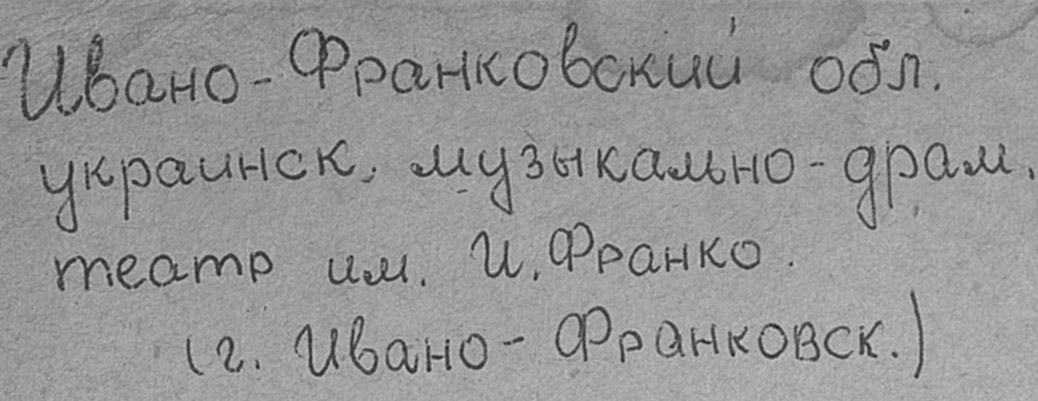 Ивано-Франковский обл.
украинск. музыкально-драм.
театр им. И. Франко.
(г. Ивано-Франковск.)